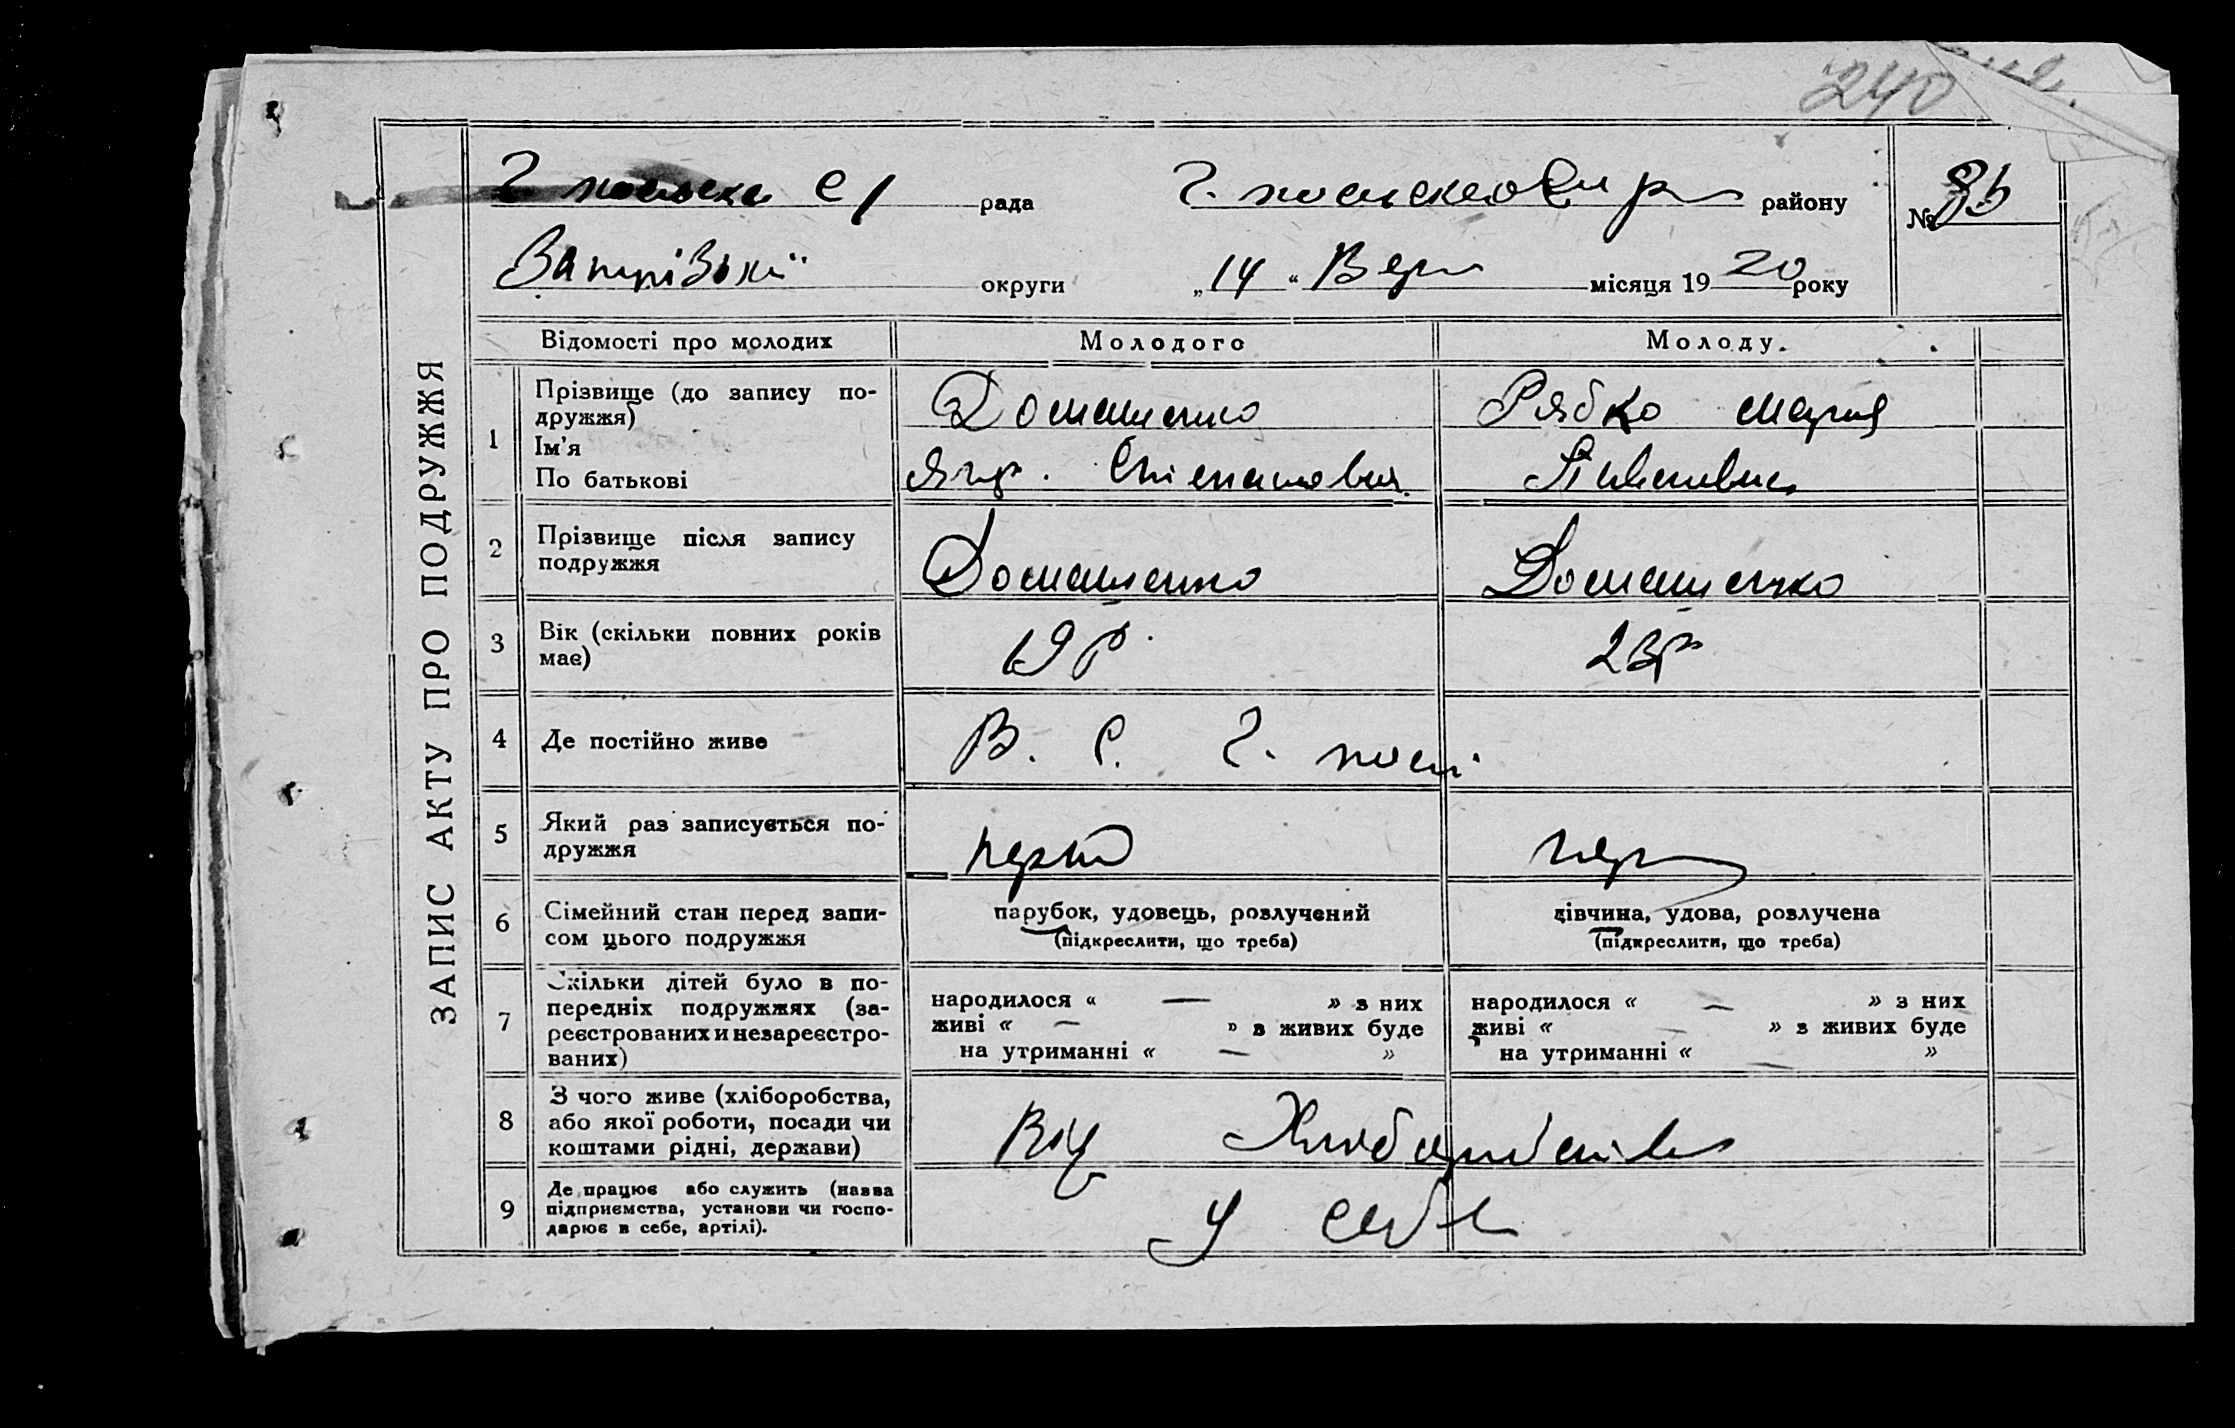 240
рада району № 85
округи „ 14 “ Вер місяця 19 20 року
ЗАПИС АКТУ ПРО ПОДРУЖЖЯ
Відомості про молодих
Молодого
Молоду.
1
Прізвище (до запису по-
дружжя)
Ім'я
По батькові
Домашенко
Степанович
Рябко Мария
2
Прізвище після запису
подружжя
Домашенко
Домашенко
3
Вік (скільки повних років
має)
19 р.
23 р
4
Де постійно живе
В. С. Г.
5
Який раз записується по-
дружжя
6
Сімейний стан перед запи-
сом цього подружжя
парубок, удовець, розлучений
(підкреслити, що треба)
дівчина, удова, розлучена
(підкреслити, що треба)
7
Скільки дітей було в по-
передніх подружжях (за-
реєстрованих и незареєстро-
ваних)
народилося « — » з них
живі « — » з живих буде
на утриманні « — »
народилося « — » з них
живі « — » з живих буде
на утриманні « — »
8
З чого живе (хліборобства,
або якої роботи, посади чи
коштами рідні, держави)
9
Де працює або служить (назва
підприємства, установи чи госпо-
дарює в себе, артілі).
У себе